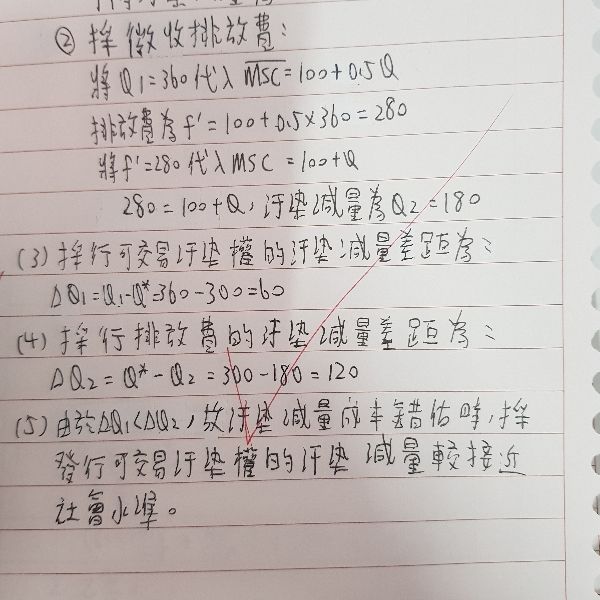 ② 採徵收排放費：
將Q1=360代入 MSC=100+0.5Q
排放費為f'=100+0.5×360=280
將f'=280代入MSC =100+Q
280=100+Q，汙染減量為Q2=180
(3) 採行可交易汙染權的汙染減量差距為：
ΔQ1=Q1-Q*=360-300=60
(4) 採行排放費的汙染減量差距為：
ΔQ2=Q*-Q2=300-180=120
(5) 由於ΔQ1<ΔQ2，故汙染減量成本錯估時，採
發行可交易汙染權的汙染減量較接近
社會水準。